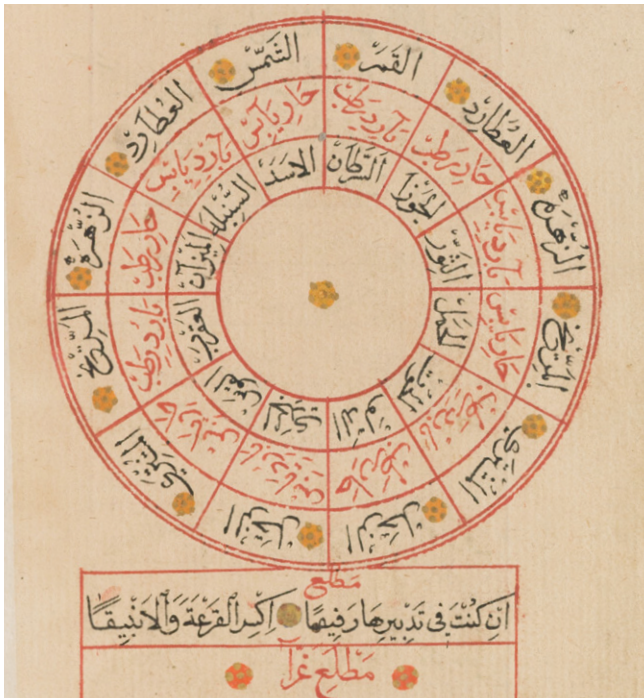 القَمَرْ
العُطَارِدْ
الزُّهَرَة
المِرِّيخْ
المُشْتَرِي
الزُحَلْ
الزُحَلْ
المُشْتَرِي
المِرِّيخْ
الزُّهَرَة
العُطَارِدْ
الشَّمْسْ
بَارِد رَطِبْ
حَار رَطِبْ
بَارِد يَابِسْ
حَار يَابِسْ
بَارِد رَطِبْ
حَار رَطِبْ
بَارِد يَابِسْ
حَار يَابِسْ
بَارِد رَطِبْ
حَار رَطِبْ
بَارِد يَابِسْ
حَار يَابِسْ
السَّرَطَانْ
الجَوْزَا
الثَّوْرْ
الحَمَلْ
الحُوتْ
الدَّلْو
الجَدْي
القَوْسْ
العَقْرَبْ
المِيزَانْ
السُّنْبُلَة
الاَسَدْ
مَطْلَعْ
اِنْ كُنْتَ فِى تَدْبِيرِهَا رَفِيقًا اِكْسِرِ القَرْعَةَ وَالاَنْبِيقَا
مَطْلَعِ غَرَّا